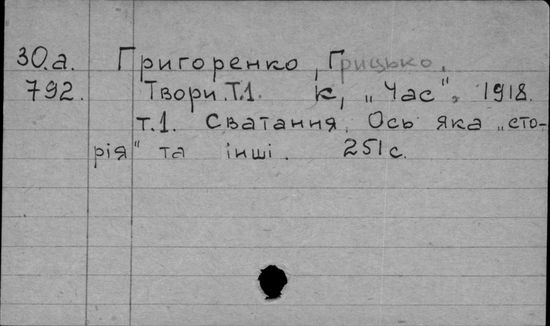 30.а. Григоренко, Грицько.
792. Твори. Т.1. К, „Час". 1918.
т.1. Сватання. Ось яка „сто-
рія" та інші. 251 с.